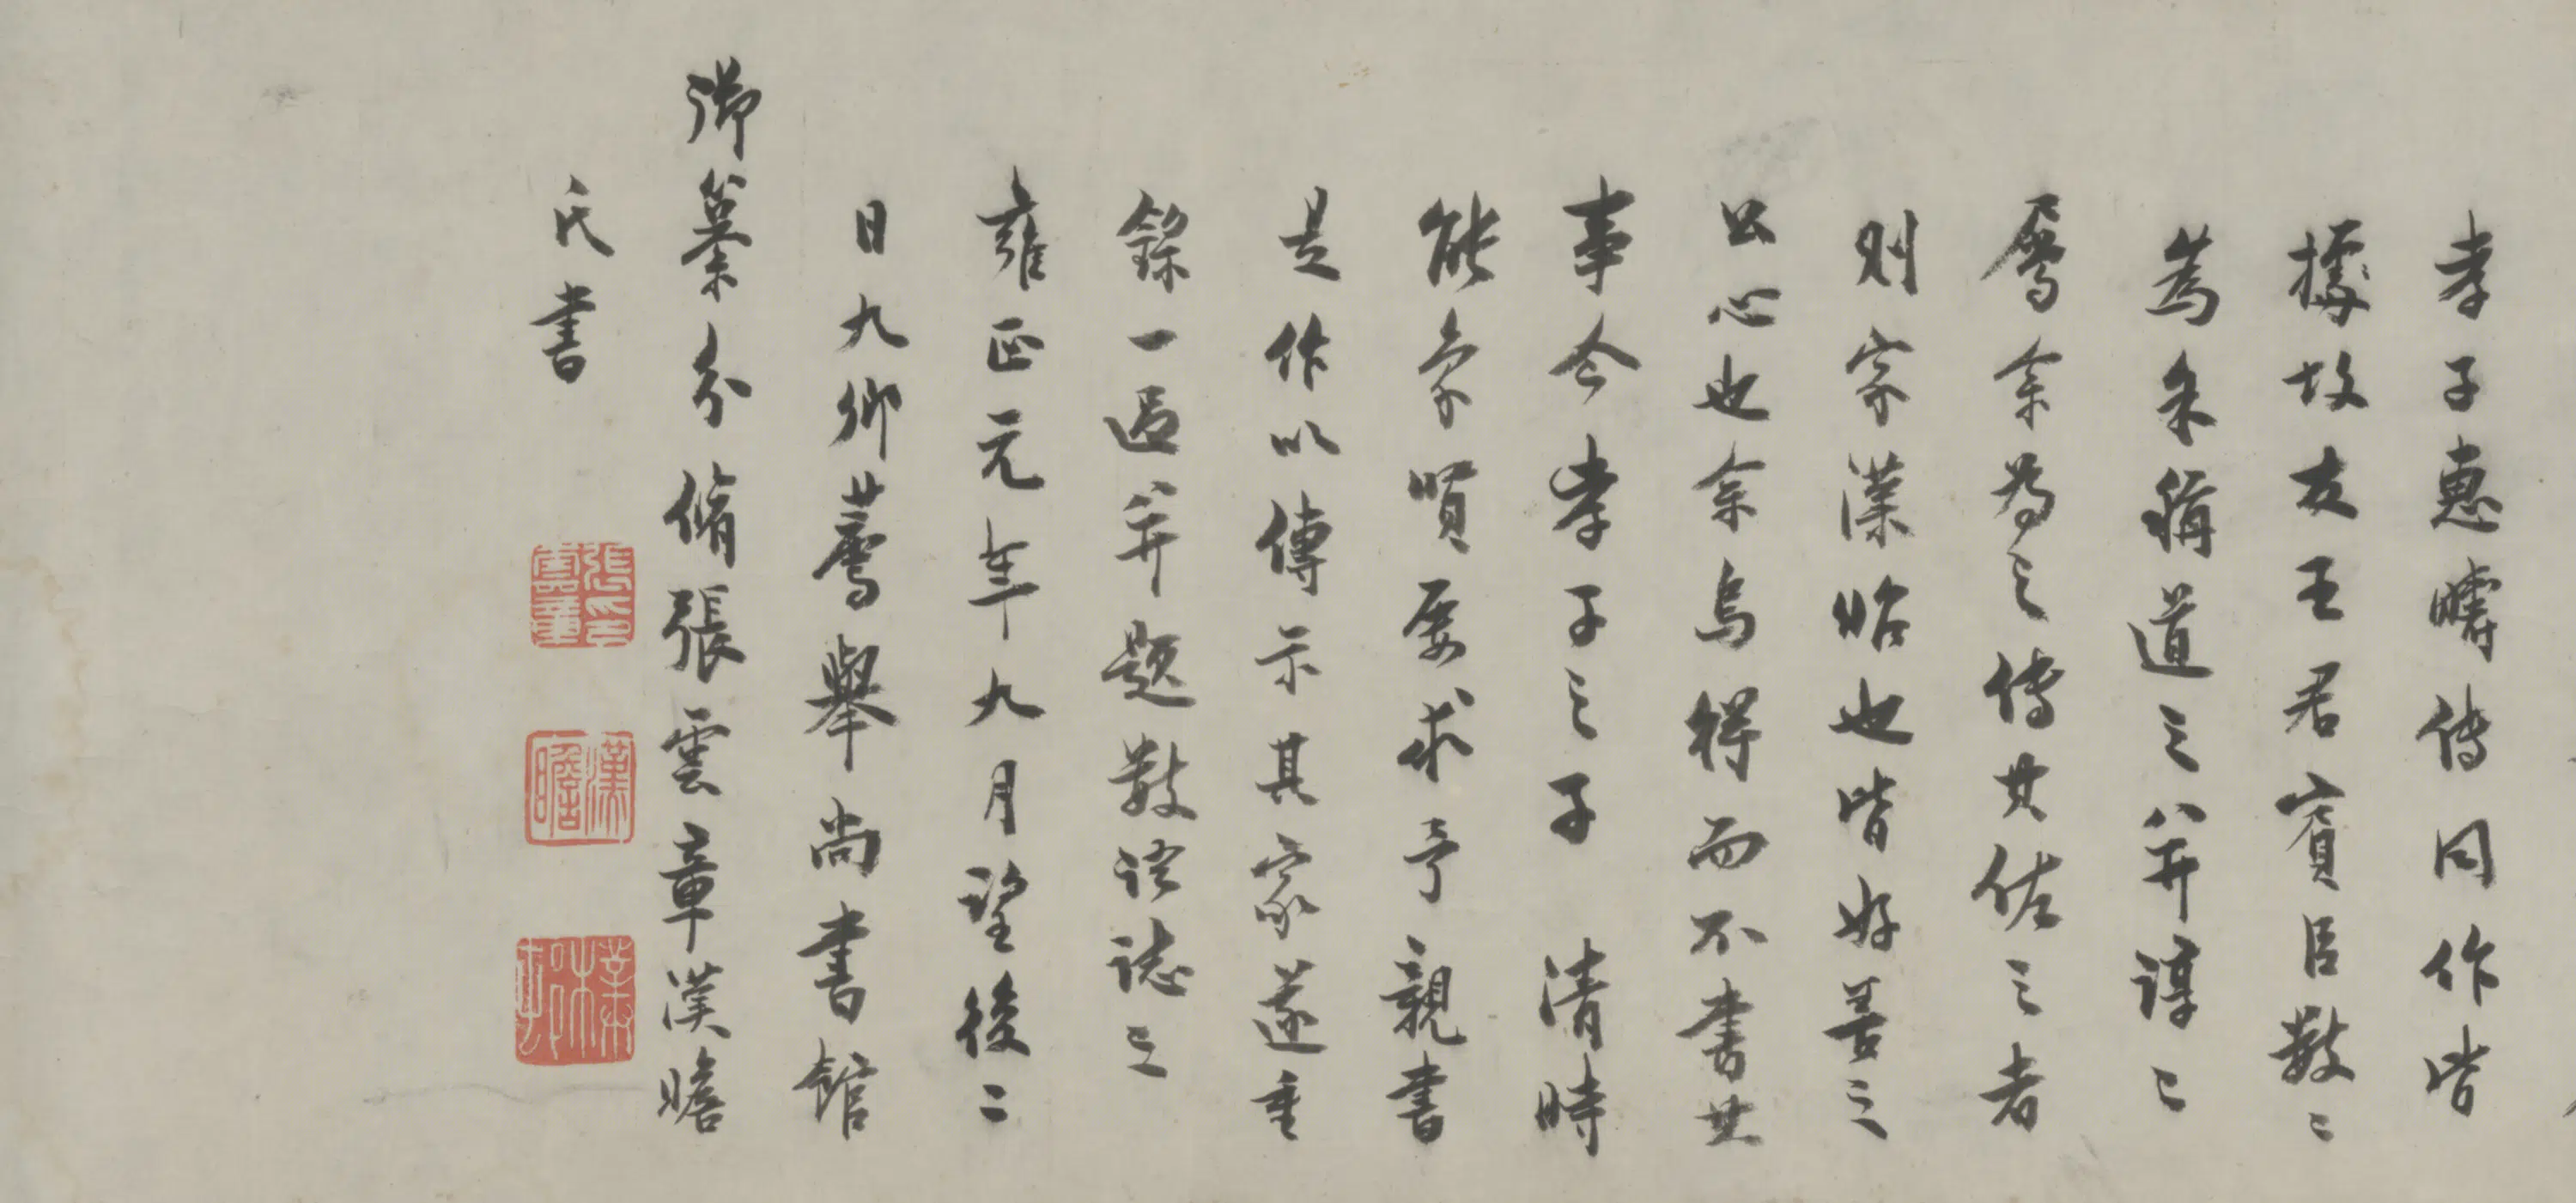 孝子惠疇傳同作皆
據故友王君賓臣數〻
為余稱道之并諄〻
屬余為之傳其佑之者
則宗漢昭也皆好善之
公心也余烏得而不書其
事今孝子之子 清時
能象賢屢求予親書
是作以傳示其家遂重
錄一過并題數語誌之
雍正元年九月望後二
日九卿薦舉尚書館
御纂分脩張雲章漢瞻
氏書
張印雲章
漢瞻